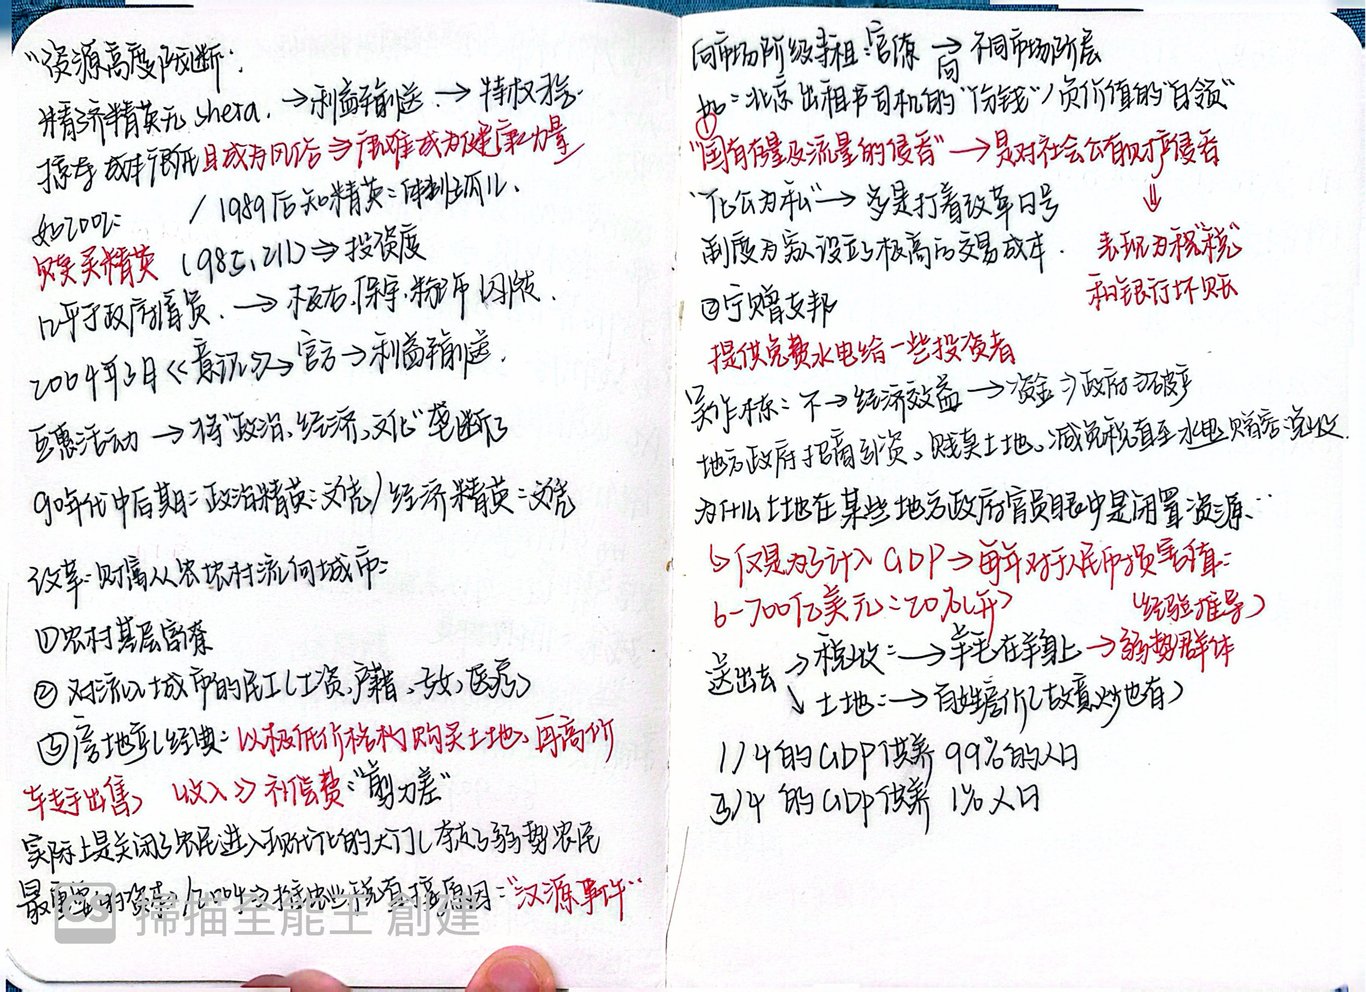 "资源高度垄断：
精济精英无 shera. → 利益输送. → 特权
掠夺成本很低且成为风俗 ⇒ 很难成为健康力量
如20%: / 1989后知精英=体制
贿买精英 (985、211) ⇒ 投资度
几乎政府雇员. → 板
2004年3月《意识》→ 官方 → 利益输送.
互惠活动 → 将"政治、经济、文化"垄断了
90年代中后期=政治精英=文凭/经济精英=文凭
改革=财富从农农村流向城市=
①农村基层富裕
② 对流入城市的民工(工资、户籍、医疗)
③房地产(经典=以极低价格构购买土地、再高价
出售) 收入≫补偿费="剪刀差"
实际上是关闭了农民进入现代化的大门(弱势农民
最重要的资 直接原因="汉源事件"
掃描全能王 創建
向市场阶级寻租=官僚 →向 不同市场阶层
如=北京出租书司机的"份钱"/负价值的"白领"
①"国有存量及流量的侵吞" → 是对社会公有财产侵吞
"化公为私" → 多是打着改革口号 ⇓
制度为寡设立了极高的交易成本. 表现为税"税"
②宁赠友邦 和银行坏账
提供免费水电给一些投资者
吴作栋=不→经济效益→资金≫政府≫破产
地方政府招商引资、贱卖土地、减免税直至水电
为什么土地在某些地方政府官员眼中是闲置资源..
↳仅是为了计入GDP→每年对于人民币损害值=
6-700亿美元=20% (经验推导)
送出去 → 税收=→羊毛在羊身上→弱势群体
↘ 土地=→百姓房价(故意炒也有)
1/4的GDP供养 99%的人口
3/4 的GDP供养 1%人口